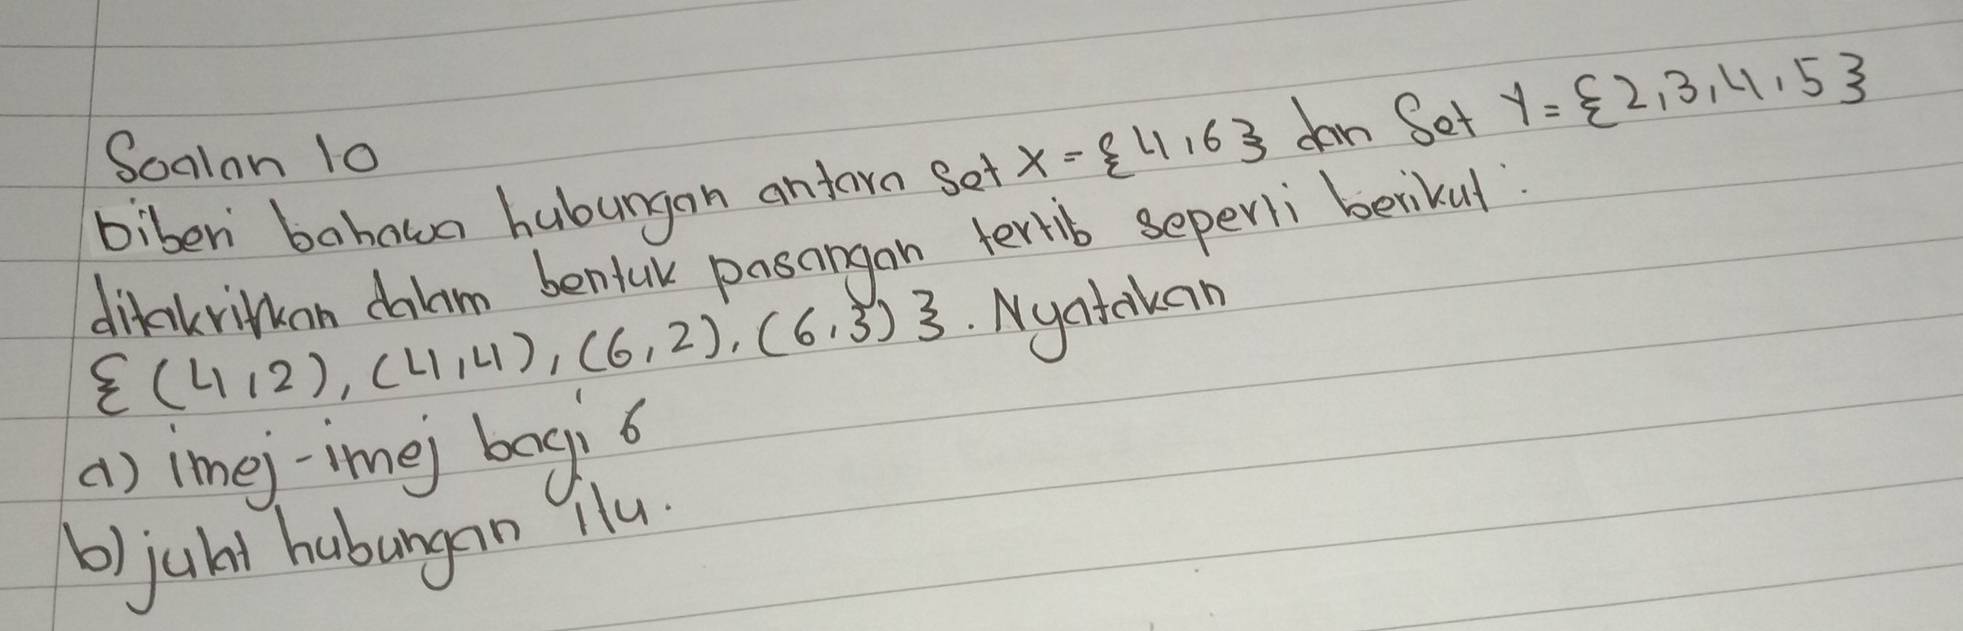 Soalan 10
Diberi bahawa hubungan antara Set X = {4,6} dan Set Y = {2,3,4,5}
ditakrifkan dalam bentuk pasangan tertib seperti berikut :
{ (4,2), (4,4), (6,2), (6,3) }. Nyatakan
a) imej-imej bagi 6
b) julat hubungan itu.